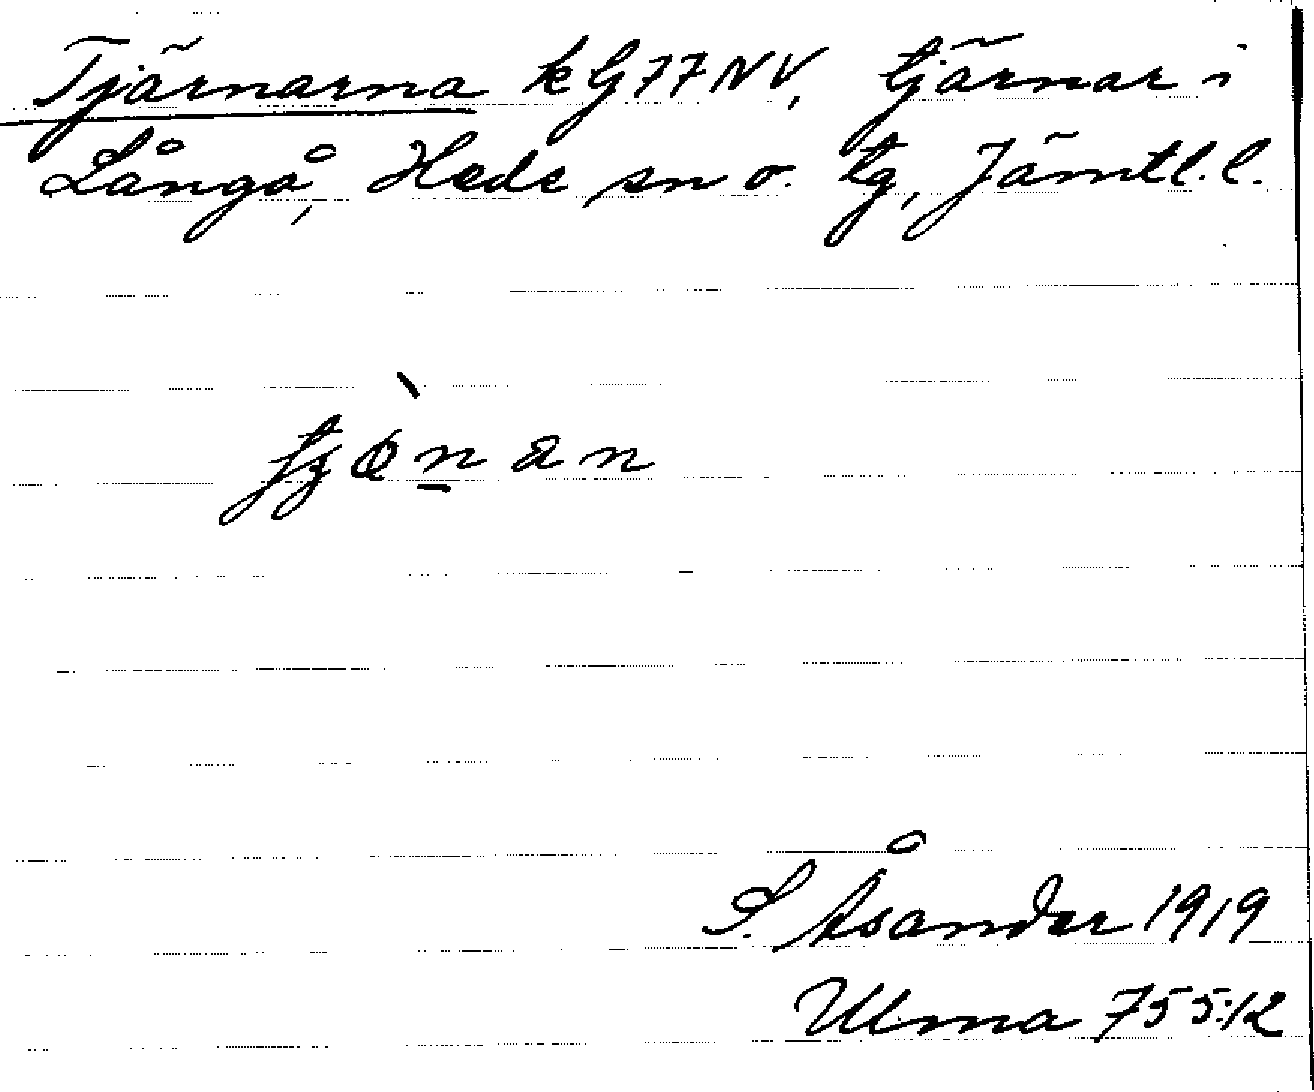 Tjärnarna kG77NV, tjärnar i
Långå, Hede sn o. tg, Jämtl. l.
S. Åsander 1919
Ulma 755:12